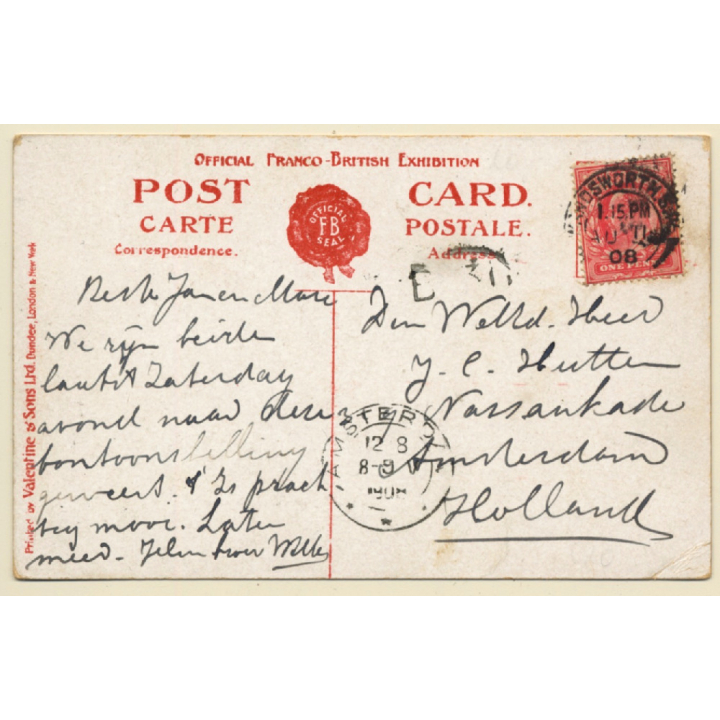 OFFICIAL FRANCO-BRITISH EXHIBITION
POST CARD.
CARTE POSTALE.
Correspondence. Address
OFFICIAL
FB
SEAL
WANDSWORTH
1.15 PM
08
ONE PENNY
Printed by Valentine & Sons Ltd. Dundee, London & New York
Beste Jan en
We zyn beiden
Zaterdag
avond naar deze
tentoonstelling
geweest. 't Is pracht
tig mooi. Later
meer.
Den Weled. Heer
J. C. Hutten
Nassaukade
Amsterdam
Holland
AMSTERDAM
12 8
8-9 V
1908